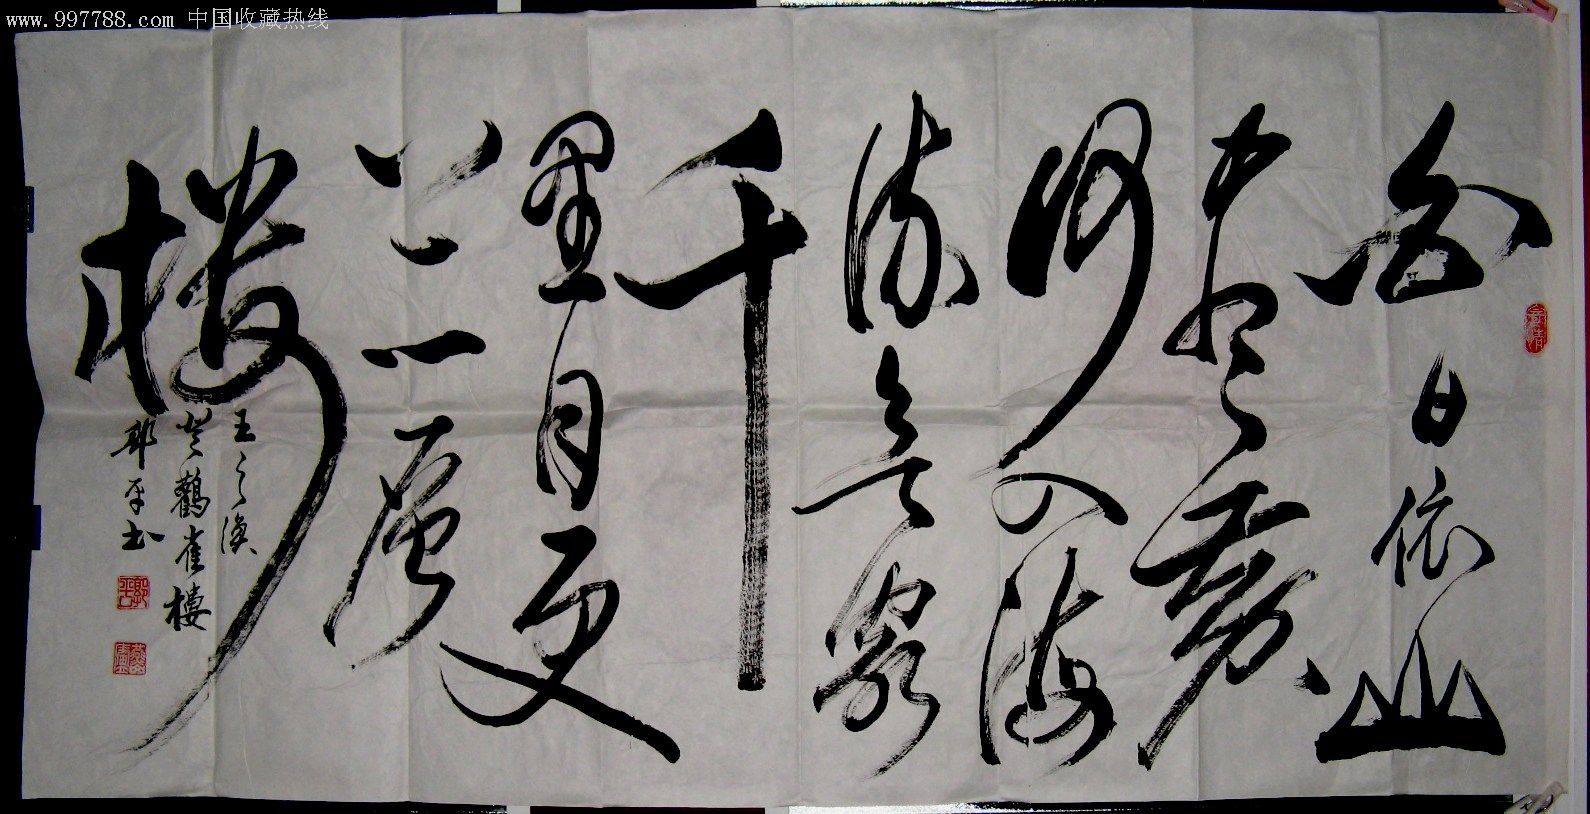 www.997788.com 中国收藏热线
白日依山
尽黄
河入海
流欲穷
千
里目更
上一层
楼
王之涣
登鸛雀樓
郭平书